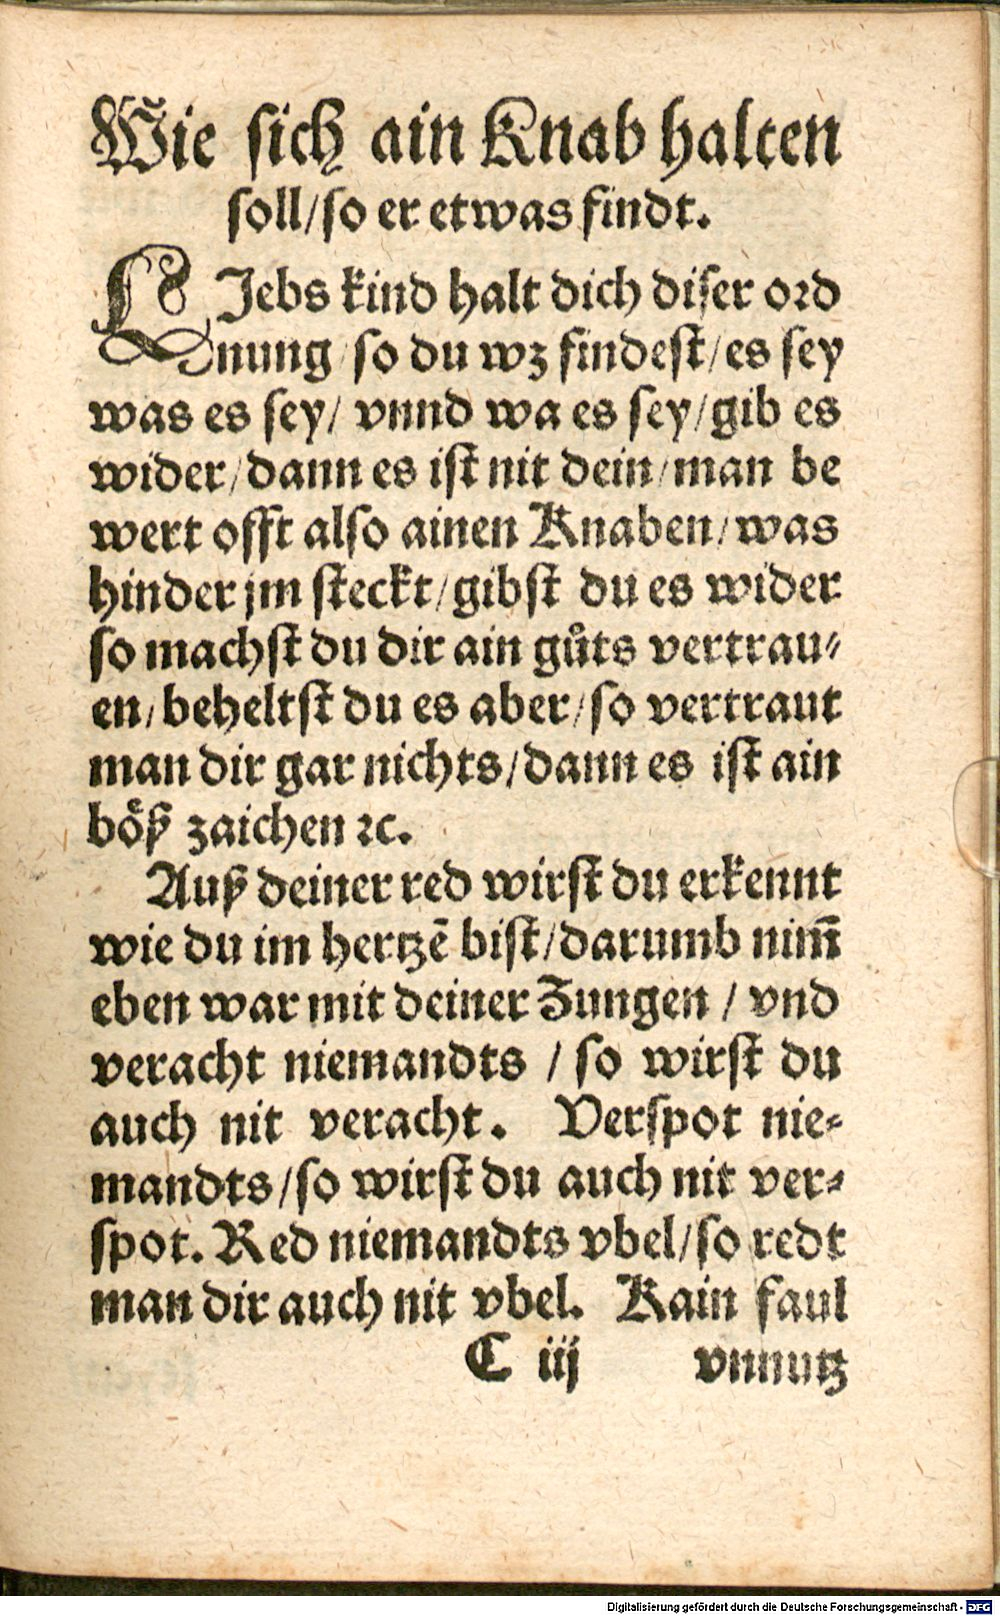 Wie sich ain Knab halten
soll/so er etwas findt.
LJebs kind halt dich diser ord
nung/so du wz findest/es sey
was es sey/ vnnd wa es sey/gib es
wider/dann es ist nit dein/man be
wert offt also ainen Knaben/was
hinder jm steckt/gibst du es wider
so machst du dir ain gůts vertrau⸗
en/beheltst du es aber/so vertraut
man dir gar nichts/dann es ist ain
böß zaichen ꝛc.
Auß deiner red wirst du erkennt
wie du im hertzē bist/darumb nim̃
eben war mit deiner Zungen / vnd
veracht niemandts / so wirst du
auch nit veracht. Verspot nie⸗
mandts/so wirst du auch nit ver⸗
spot. Red niemandts vbel/so redt
man dir auch nit vbel. Kain faul
C iij vnnutz
Digitalisierung gefördert durch die Deutsche Forschungsgemeinschaft - DFG